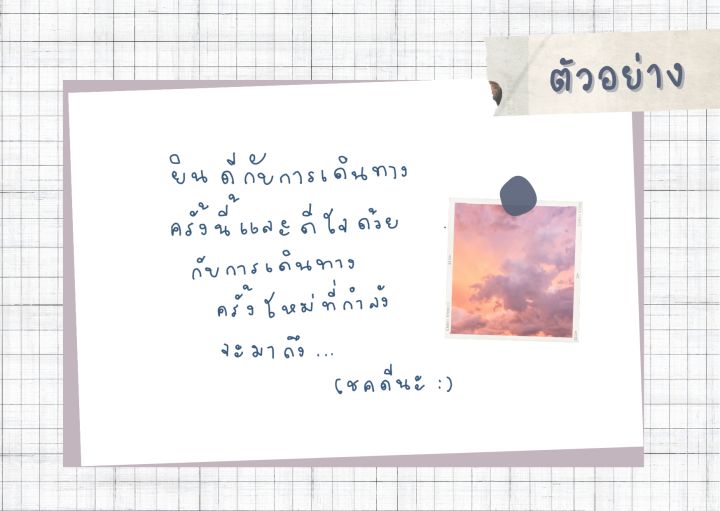 ตัวอย่าง
ยินดีกับการเดินทาง
ครั้งนี้และดีใจด้วย
กับการเดินทาง
ครั้งใหม่ที่กำลัง
จะมาถึง...
โชคดีนะ :)